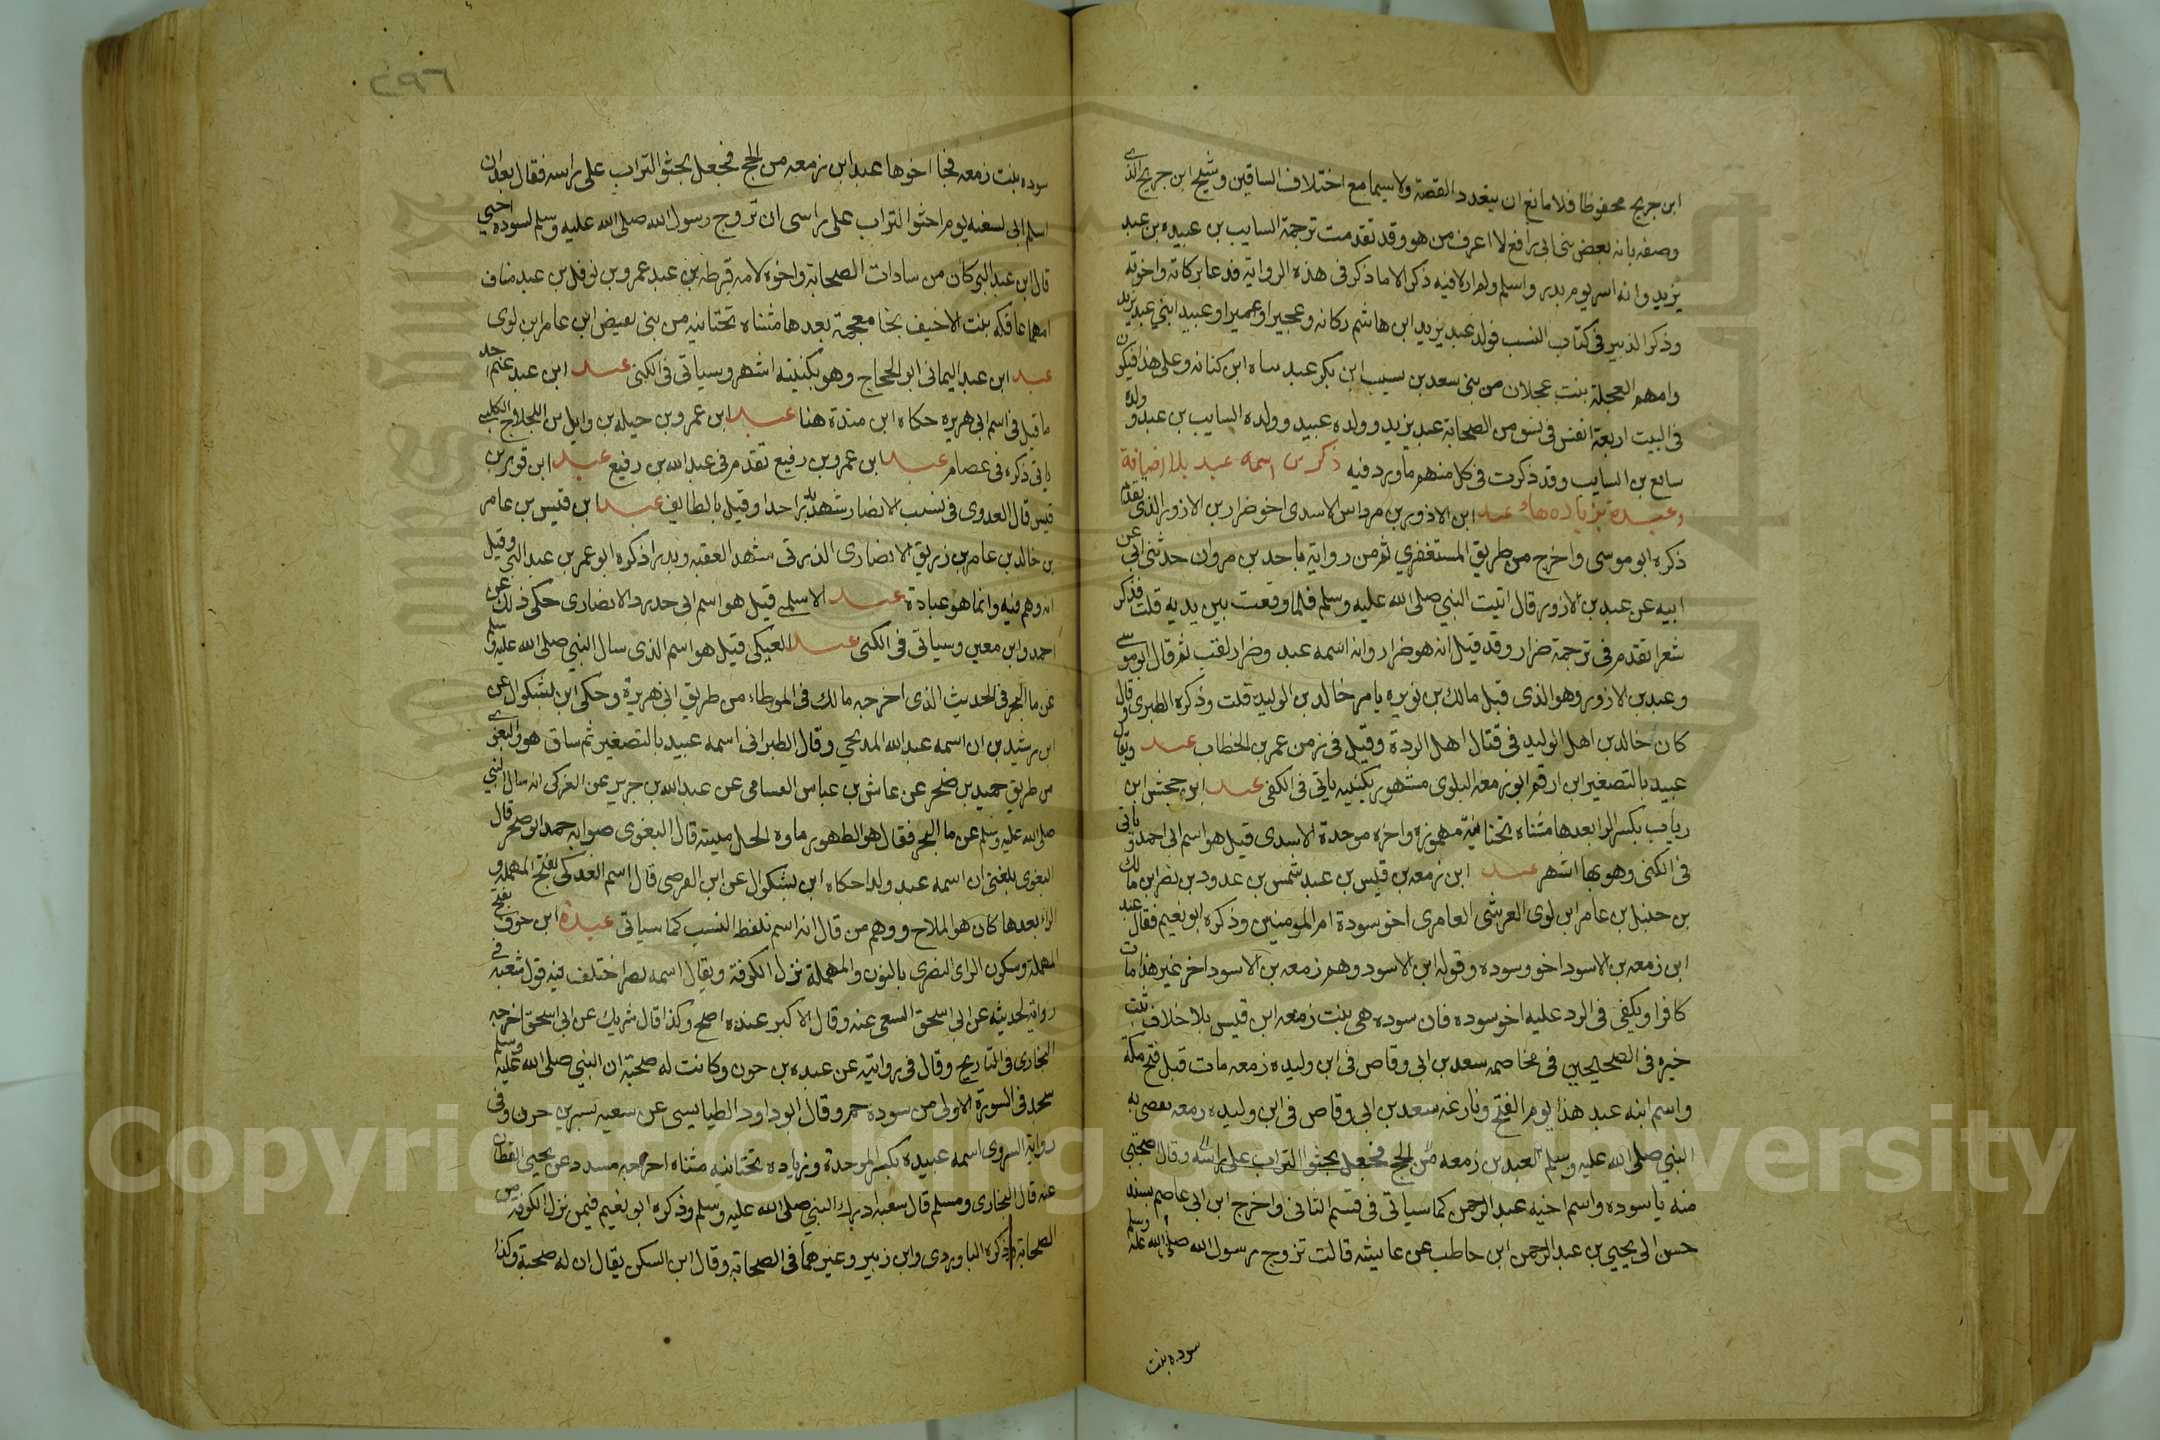 ابن جريج محفوظا فلا مانع ان يتعدد القصة ولاسيما مع اختلاف الساقين وشيخ ابن جريج الذى
وصفه بانه بعض بنى ابى رافع لا اعرف من هو وقد تقدمت ترجمة السايب بن عبيده بن عبد
يزيد وانه اسر يوم بدر واسلم ولم ار لافيه ذكر الا ما ذكر فى هذه الرواية فدعا بركانه واخوته
وذكر الزبير فى كتاب النسب فولد عبد يزيد ابن هاشم ركانه وعجيرا وعميرا وعبيد ابنى عبد يزيد
وامهم العجلة بنت عجلان من بنى سعد بن ليث ابن بكر عبد مناه ابن كنانه وعلى هذا فيكون
فى البيت اربعة انفس فى نسق من الصحابة عبد يزيد وولده عبيد وولده السايب بن عبد وولده
سافع بن السايب وقد ذكرت فى كل منهم ما ورد فيه ذكر من اسمه عبد بلا اضافة
وعبدة بزيادة هاء عبد ابن الازور بن مرداس الاسدى اخو ضرار بن الازور الذى تقدم
ذكره ابو موسى واخرج من طريق المستغفري ثم من رواية ماجد بن مروان حدثنى ابى عن
ابيه عن عبد بن الازور قال اتيت النبي صلى الله عليه وسلم فلما وقعت بين يديه قلت فذكر
شعرا تقدم فى ترجمة ضرار وقد قيل انه هو ضرار وانه اسمه عبد وضرار لقب ثم قال ابو موسى
وعبد بن الازور وهو الذى قتل مالك بن نويره بامر خالد بن الوليد قلت وذكره الطبرى وقال
كان خالد بن الوليد فى قتال اهل الردة وقيل فى زمن عمر بن الخطاب عبد ويقال
عبيد بالتصغير ابن ارقم ابو زمعه البلوى مشهور بكنيته ياتى فى الكنى عبد ابن جحش ابن
رياب بكسر الرا بعدها مثناه تحتانية مهموزه واخره موحدة الاسدى قيل هو اسم ابى احمد وياتى
فى الكنى وهو بها اشهر عبد ابن زمعه بن قيس بن عبد شمس بن عبدود بن نصر ابن مالك
بن حنبل بن عامر ابن لوى القرشى العامرى اخو سودة ام المومنين وذكره ابو نعيم فقال عبد
ابن زمعه بن الاسود اخو سوده وقوله ابن الاسود وهم زمعه بن الاسود اخر غير هذا مات
كافرا ويكفى فى الرد عليه اخو سوده فان سوده هى بنت زمعه ابن قيس بلا خلاف ثبت
خبره فى الصحيحين فى مخاصمه سعد بن ابى وقاص فى ابن وليده زمعه مات قبل فتح مكة
واسم ابنه عبد هذا يوم الفتح ونازعه سعد بن ابى وقاص فى ابن وليده زمعه بقضى به
النبي صلى الله عليه وسلم لعبد بن زمعه من الحج فجعل يحثو التراب على راسه وقال احتجبى
منه يا سوده واسم اخيه عبد الرحمن كما سياتى فى قسم الثانى واخرج ابن ابى عاصم بسند
حسن الى يحيى بن عبد الرحمن ابن حاطب عن عايشه قالت تزوج رسول الله صلى الله عليه وسلم
سوده بنت
٢٩٦
سوده بنت زمعه فجا اخوها عبد ابن زمعه من الحج فجعل يحثو التراب على راسه فقال بعد ان
اسلم انى لسفيه يوم احثوا التراب على راسى ان تزوج رسول الله صلى الله عليه وسلم لسوده اختى
قال ابن عبد البر كان من سادات الصحابة واخوه لامه قرطه بن عبد عمرو بن نوفل بن عبد مناف
امهما عاتكه بنت الاخيف بخا معجمة بعدها مثناه تحتانيه من بنى بغيض ابن عامر ابن لوى
عبد ابن عبد اليمانى ابو الحجاج وهو بكنيته اشهر وسياتى فى الكنى عبد ابن عبد غنم احد
ما قيل فى اسم ابى هريره حكاه ابن مندة هنا عبد ابن عمرو بن جبله بن وايل بن الجلاح الكلبى
ياتى ذكره فى عصام عبد ابن عمرو بن رفيع تقدم فى عبد الله بن رفيع عبد ابن قوير بن
قيس قال العدوى فى نسب الانصار شهد براحدا وقيل بالطايف عبد ابن قيس بن عامر
بن خالد بن عامر بن زريق الانصارى الزرقى شهد العقبه وبدرا ذكره ابو عمر بن عبد البر وقيل
انه وهم فيه وانما هو عبادة عبد الاسلمى قيل هو اسم ابى حدرد الانصارى حكى ذلك عن
احمد وابن معين وسياتى فى الكنى عبد العركى قيل هو اسم الذى سال النبي صلى الله عليه وسلم
عن ما البحر فى الحديث الذى اخرجه مالك فى الموطاء من طريق ابى هريرة وحكى ابن بشكوال عن
ابن رشدين ان اسمه عبد الله المدلجى وقال الطبرانى اسمه عبيد بالتصغير ثم ساق هو والبغوى
من طريق حميد بن صخر عن عاش بن عباس العسامى عن عبد الله بن جرير عن العركى انه سال النبي
صلى الله عليه وسلم عن ما البحر فقال هو الطهور ماوه الحل ميتته قال البغوى صوابه حميد ابو صخر قال
البغوى بلغنى ان اسمه عبد ولد احكاه ابن بشكوال عن ابن الفرضى قال اسم العركى بفتح المهمله و
الراء بعدها كان هو الملاح ووهم من قال انه اسم بلفظ النسب كما سياتى عبدة ابن حزن بفتح
المهملة وسكون الزاى النصرى بالنون والمهملة نزل الكوفة ويقال اسمه نصر اختلف فيه قول شعبه فى
روايته لحديثه عن ابى اسحق السبعى عنه وقال الاكبر عبده اصح وكذا قال شريك عن ابى اسحق اخرجه
البخارى فى التاريخ وقال فى روايته عن عبده بن حزن وكانت له صحبة ان النبي صلى الله عليه وسلم
سجد فى السورة الاولى من سوده حم وقال ابو داود الطيالسى عن شعبه نصر بن حزن وفى
رواية السروى اسمه عبيدة بكسر الموحدة وزياده تحتانيه مثناه اخرجه مسدد عن يحيى القطان
عنه قال البخارى ومسلم قال شعبه ادرك النبي صلى الله عليه وسلم وذكره ابو نعيم فيمن نزل الكوفة من
الصحابة وذكره الباوردى وابن زبير وغيرهما فى الصحابة وقال ابن السكن يقال ان له صحبة وكذا
Copyright © King Saud University